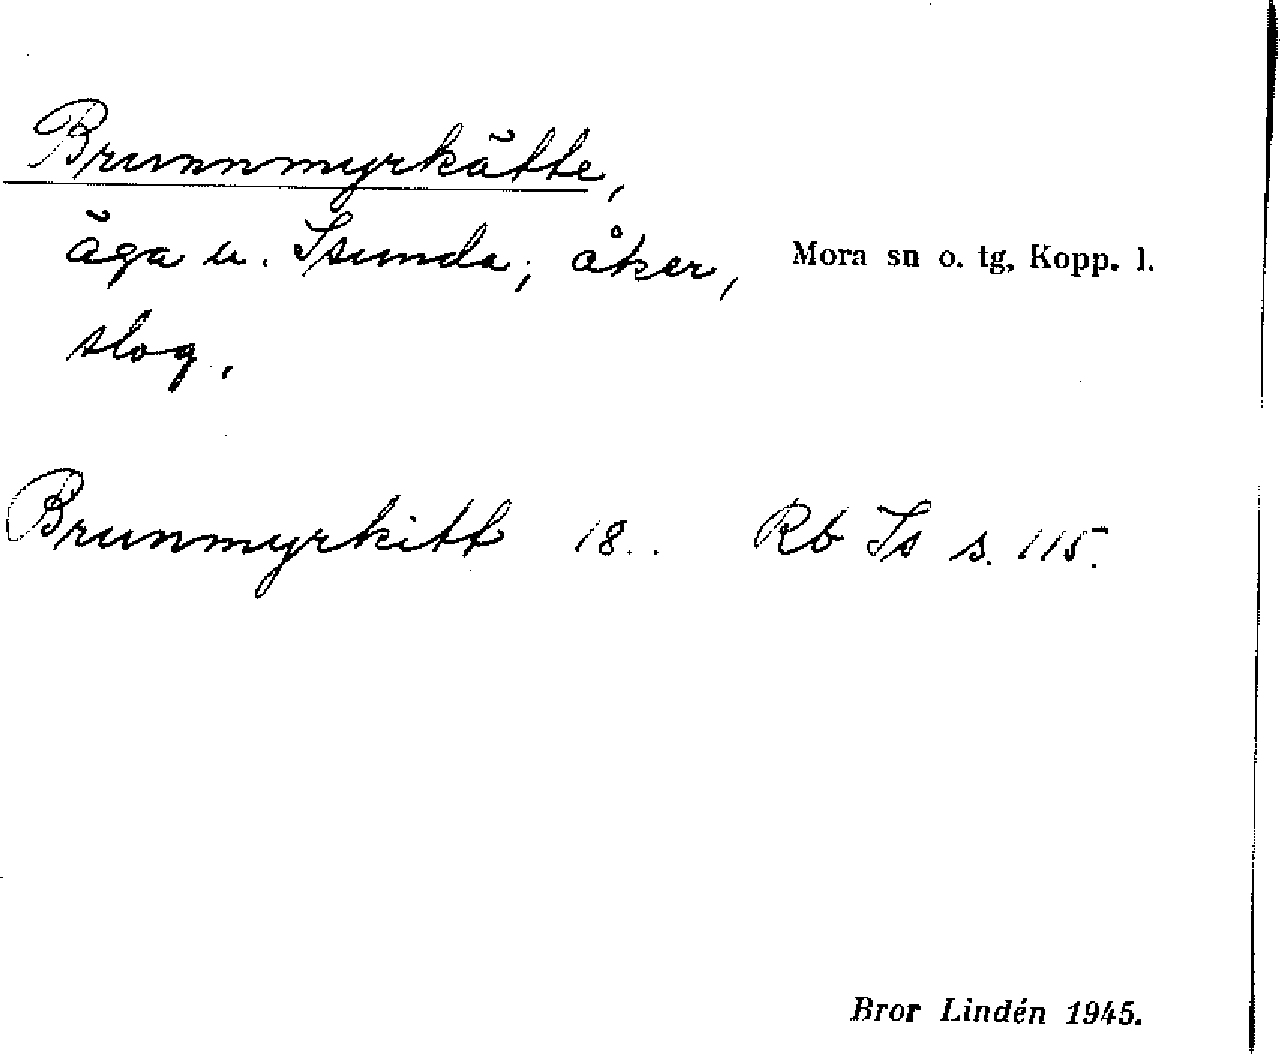 Brunnmyrkätte,
äga u. Isunda; åker, Mora sn o. tg, Kopp. l.
slog.
Brunmyrkitt 18.. Rb Is s. 115.
Bror Lindén 1945.